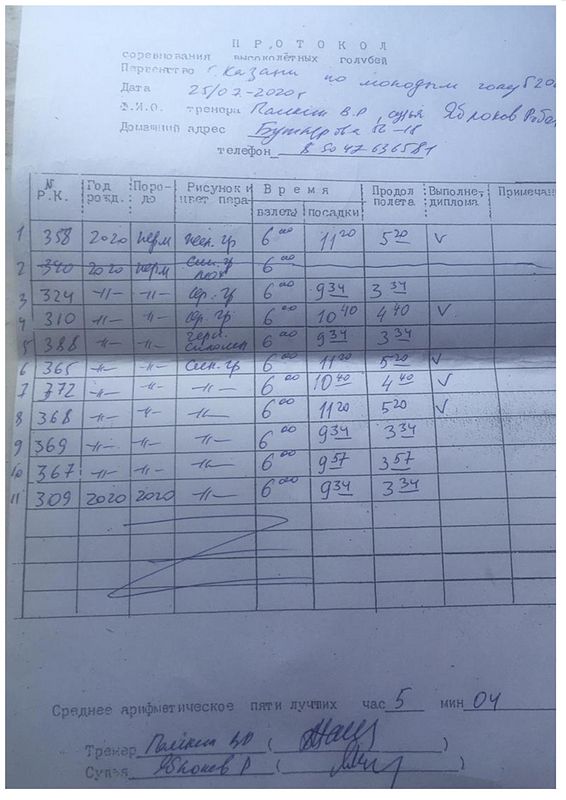 П Р О Т О К О Л
соревнования высоколётных голубей
Первенство г. Казани по молодым голуб 20
Дата 25/07-2020г
Ф.И.О. тренера В.Р, судья Яблоков
Домашний адрес 16-18
телефон 8 5047636581
N Р.К. Год рожд. Поро- до Рисунок и цвет пера В р е м я взлеты посадки Продол полета Выполне, диплома Примечан
1 358 2020 перм гр 6 00 11 20 5 20 V
2 340 2020 перм 6 00
3 324 -"- -"- гр 6 00 9 34 3 34
4 310 -"- -"- гр 6 00 10 40 4 40 V
5 388 -"- -"- 6 00 9 34 3 34
6 365 -"- -"- син. гр 6 00 11 20 5 20 V
7 372 -"- -"- -"- 6 00 10 40 4 40 V
8 368 -"- -"- -"- 6 00 11 20 5 20 V
9 369 -"- -"- -"- 6 00 9 34 3 34
10 367 -"- -"- -"- 6 00 9 57 3 57
11 309 2020 2020 -"- 6 00 9 34 3 34
Среднее арифметическое пяти лучших час 5 мин 04
Тренер ( )
Судья Яблоков Р ( )